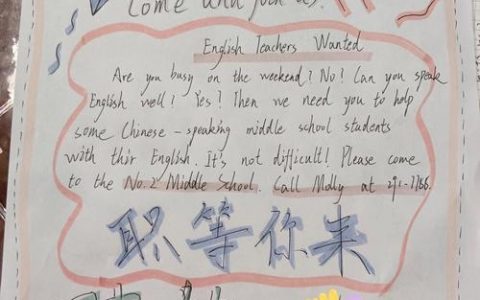 Come and join us!
English Teachers Wanted
Are you busy on the weekend? No! Can you speak
English well? Yes? Then we need you to help
some Chinese-speaking middle school students
with thir English. It's not difficult! Please come
to the No.2 Middle School. Call Molly at
职等你来